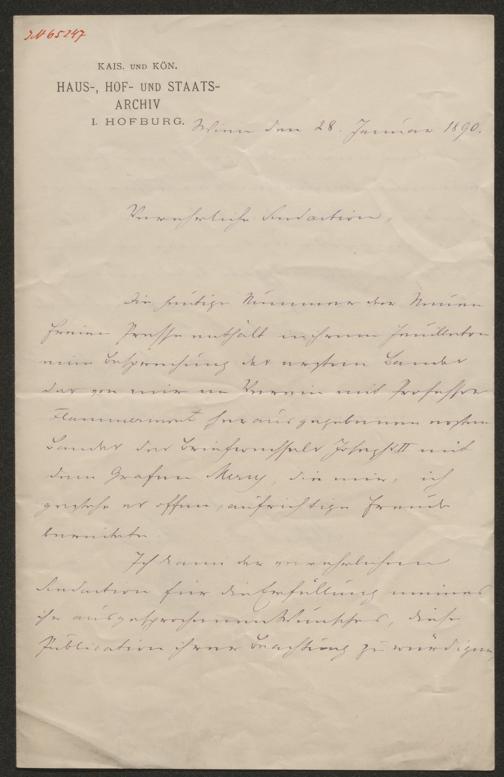 JN 65247
KAIS. UND KÖN.
HAUS-, HOF- UND STAATS-
ARCHIV
I. HOFBURG.
Wien den 28. Januar 1890.
Verehrliche Redaction,
Die heutige Nummer der Neuen
Freien Presse enthält in ihrem Feuilleton
eine Besprechung des ersten Bandes
des von mir im Verein mit Professor
Flammermont herausgegebenen ersten
Bandes des Briefwechsels Josephs II mit
dem Grafen Mercy, die mir, ich
gestehe es offen, aufrichtige Freude
bereitete.
Ich kann der verehrlichen
Redaction für die Erfüllung meines
ihr ausgesprochenen Wunsches, diese
Publication ihrer Beachtung zu würdigen,